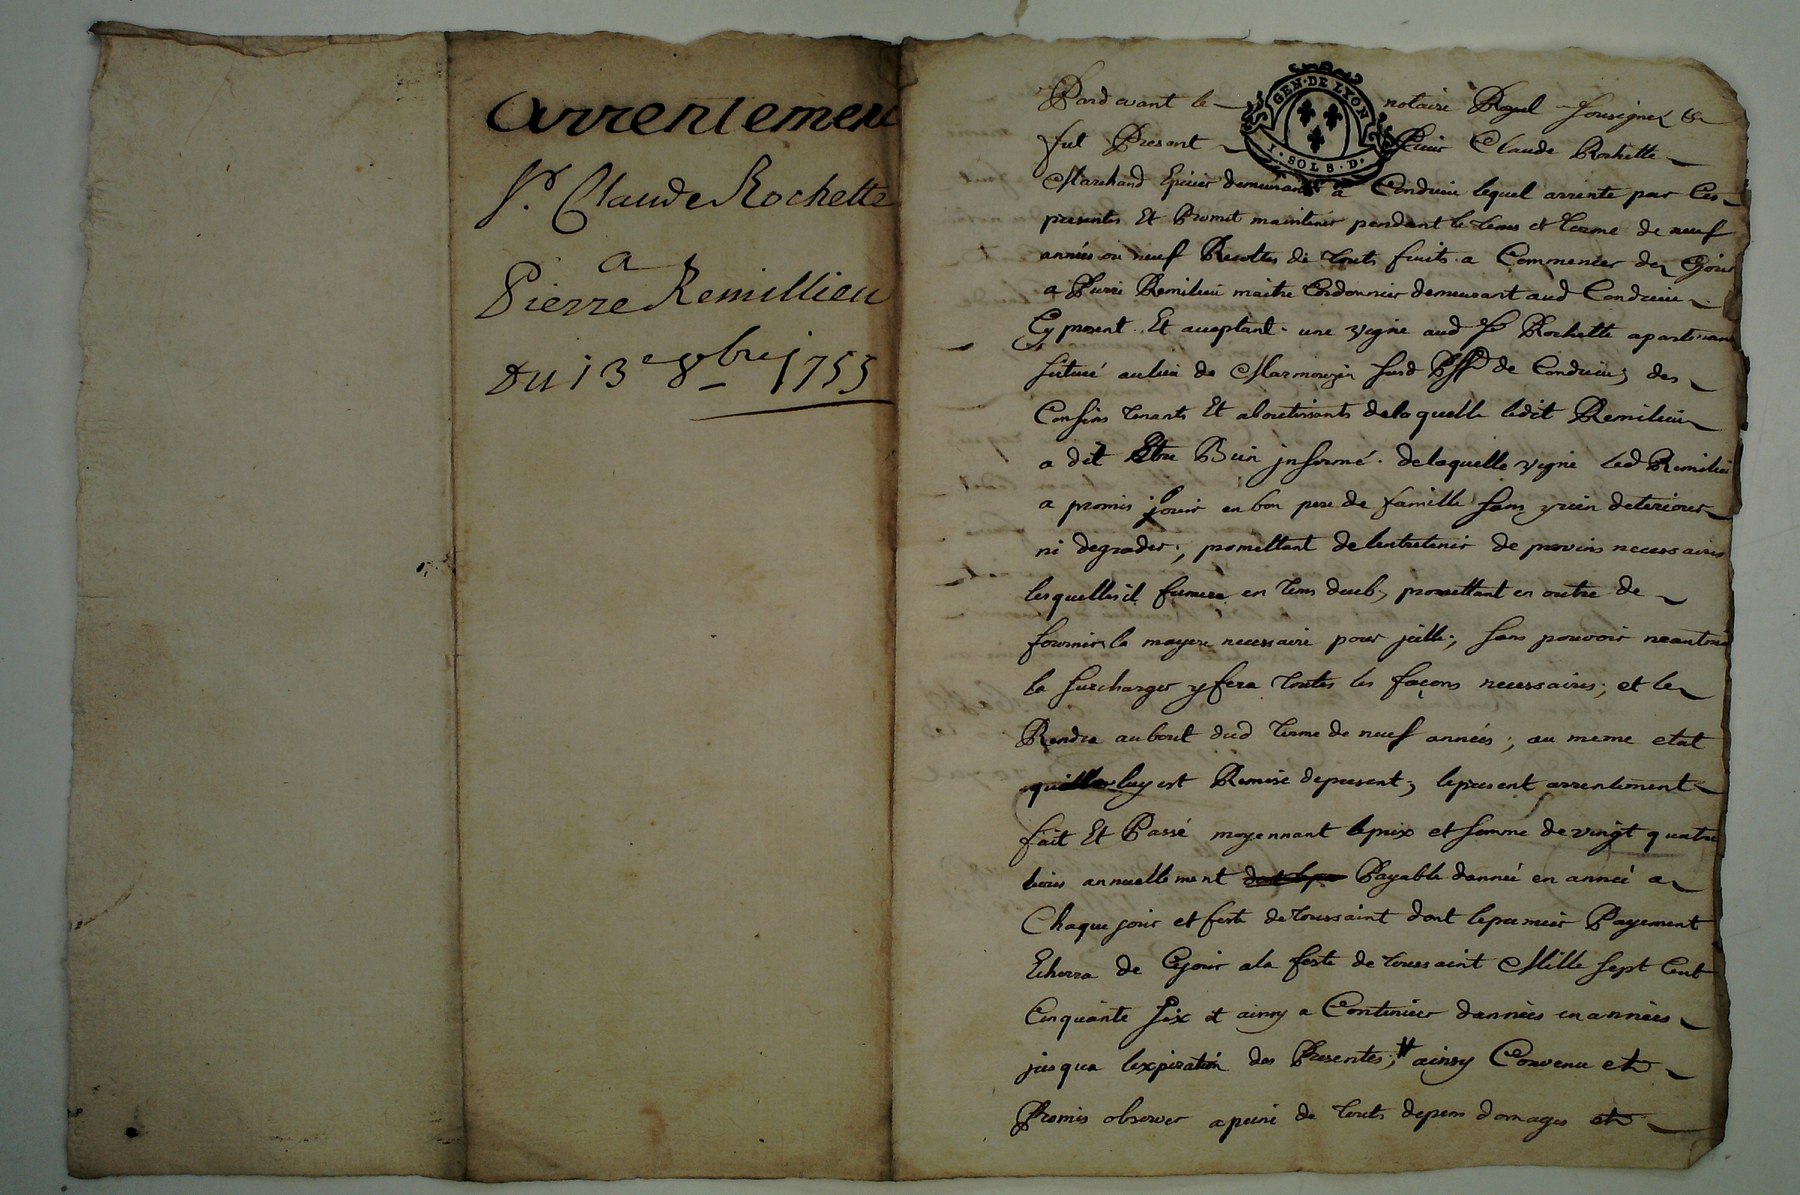 arrentement
Sr. Claude Rochette
a
Pierre Remillieu
Du 13e 8bre 1755
GEN · DE LYON
I · SOLS · D ·
Pardevant le notaire Royal sousigné &
fut Present Sieur Claude Rochette
Marchand Epicier demeurant a Condrieu lequel arrente par Ces
presentes Et Promet maintenir pendant le tems et terme de neuf
années ou neuf Recoltes de touts fruits a Commencer de Cejour
a Pierre Remilieu maitre Cordonnier demeurant aud Condrieu
Cy present Et aceptant une vigne aud Sr Rochette apartenant
scituée au lieu de Marmouzin de Condrieu; des
Confins tenants Et aboutissants delaquelle ledit Remilieu
a dit Etre Bien informé. delaquelle vigne led Remilieu
a promis jouir en bon pere de famille sans y rien deteriorer
ni degrader; promettant delentretenir de provins necessaires
lesquelles il fumera en tems deub, promettant en outre de
fournir la mayere necessaire pour jcelle; sans pouvoir neantmoins
la surcharger y fera toutes les façons necessaires; et la
Rendra au bout dud terme de neuf années; au meme etat
luy est Remise depresent; lepresent arrentement
fait Et Passé moyennant leprix et somme de vingt quatre
livres annuellement Payable dannée en année a
Chaque jour et feste de toussaint dont lepremier Payement
Echerra de Cejour a la feste de toussaint Mille sept Cent
Cinquante six et ainsy a Continuer dannées en années
jusqua lexpiration des Presentes; # ainsy Convenu et
Promis observer apeine de touts depens domages et